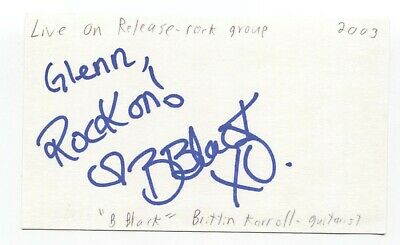 Live on Release - rock group 2003
Glenn,
Rock on!
B Black XO.
"B Black" = Brittin Karroll - guitarist